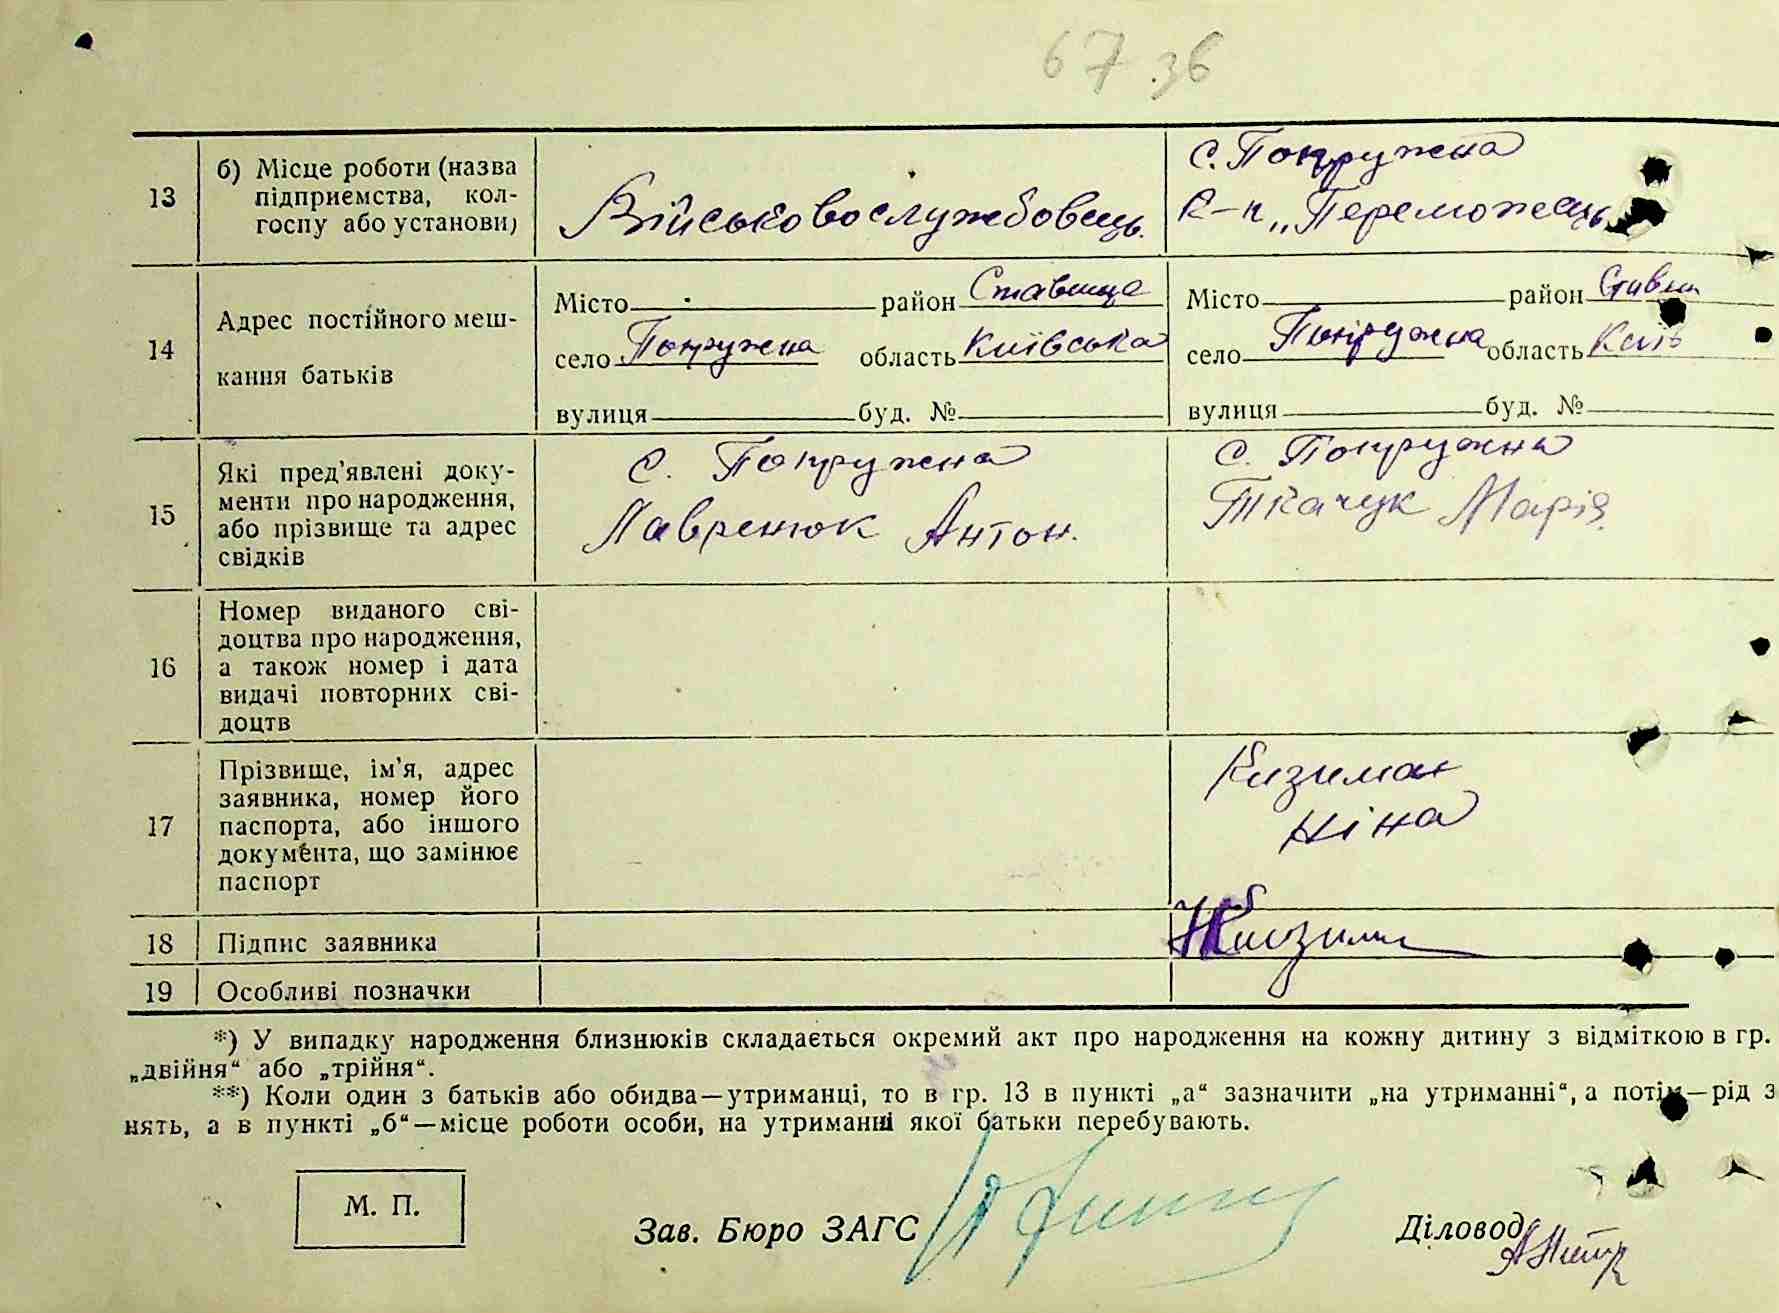 67 36
13
б) Місце роботи (назва
підприємства, кол-
госпу або установи)
Військовослужбовець.
с. Попружена
к-п „Переможець
14
Адрес постійного меш-
кання батьків
Місто район Ставище
село Попружена область Київська
вулиця буд. №
Місто район Стави
село Попружена область Київ
вулиця буд. №
15
Які пред'явлені доку-
менти про народження,
або прізвище та адрес
свідків
с. Попружена
Лавренюк Антон.
с. Попружна
Ткачук Марія.
16
Номер виданого сві-
доцтва про народження,
а також номер і дата
видачі повторних сві-
доцтв
17
Прізвище, ім'я, адрес
заявника, номер його
паспорта, або іншого
документа, що замінює
паспорт
Кизиман
Ніна
18 Підпис заявника
НКизим
19 Особливі позначки
*) У випадку народження близнюків складається окремий акт про народження на кожну дитину з відміткою в гр.
„двійня“ або „трійня“.
**) Коли один з батьків або обидва—утриманці, то в гр. 13 в пункті „а“ зазначити „на утриманні“, а потім—рід з
нять, а в пункті „б“—місце роботи особи, на утриманні якої батьки перебувають.
М. П.
Зав. Бюро ЗАГС
Діловод